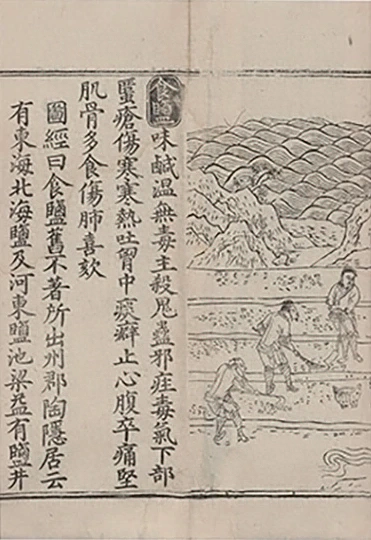 食鹽
味鹹溫無毒主殺鬼蠱邪疰毒氣下部
䘌瘡傷寒寒熱吐胷中痰癖止心腹卒痛堅
肌骨多食傷肺喜欬
圖經曰食鹽舊不著所出州郡陶隱居云
有東海北海鹽及河東鹽池梁益有鹽井